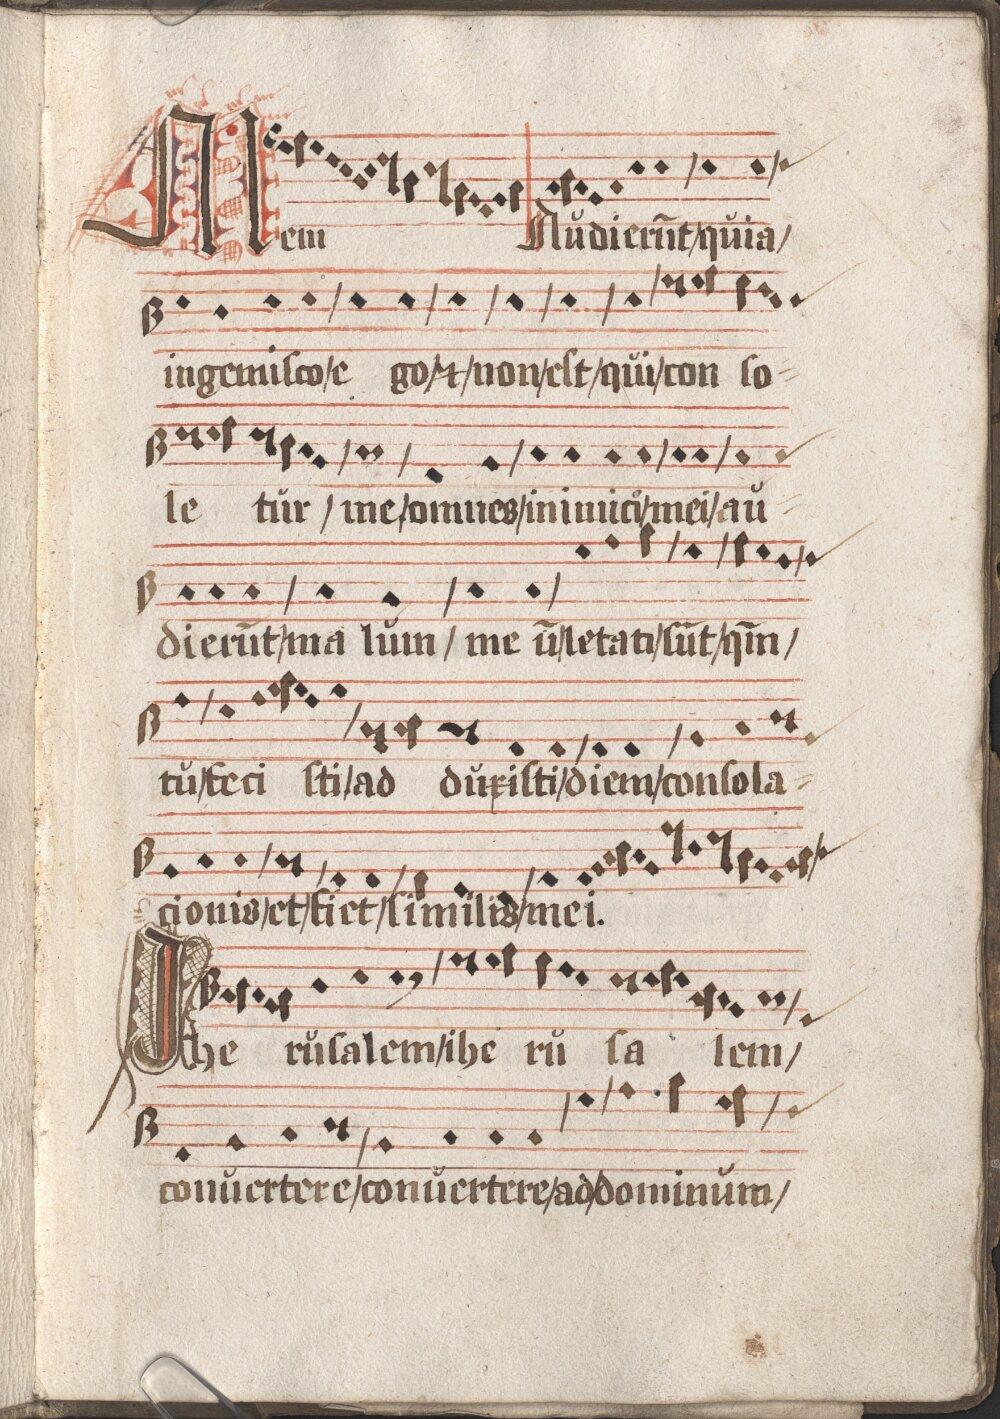 Mem Audierūt/quia/
ingemisco/e go/⁊/non/est/qui/con so=
le tur/me/omnes/inimici/mei/au=
dierūt/ma lum/me ū/letati/sūt/qm̄/
tu/feci sti/ad duxisti/diem/consola=
cionis/et/fiet/similis/mei.
Ihe rusalem/ihe ru sa lem/
conuertere/conuertere/ad/dominum/